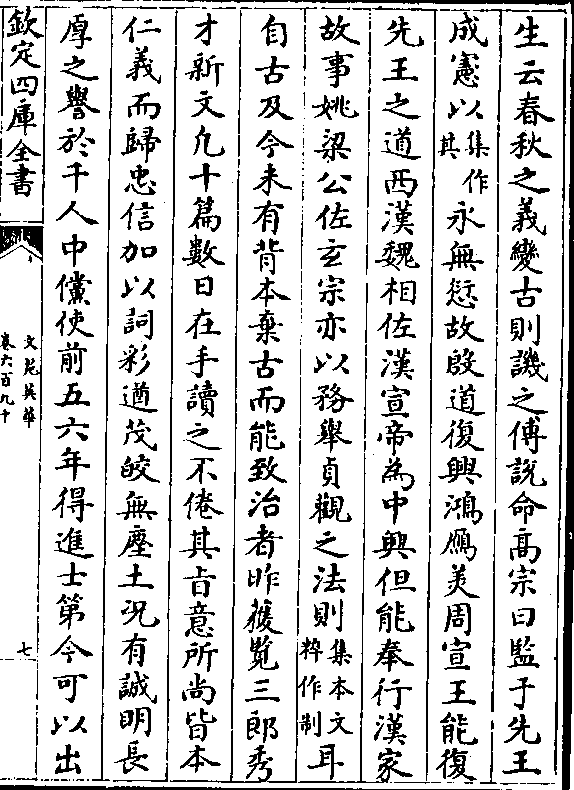 生云春秋之義變古則譏之傅說命高宗曰監于先王
成憲以集作其永無愆故殷道復興鴻鴈美周宣王能復
先王之道西漢魏相佐漢宣帝為中興但能奉行漢家
故事姚梁公佐玄宗亦以務舉貞觀之法則集本文粹作制耳
自古及今未有背本棄古而能致治者昨獲覽三郎秀
才新文凡十篇數日在手讀之不倦其旨意所尚皆本
仁義而歸忠信加以詞彩遒茂皎無塵土况有誠明長
厚之譽於千人中儻使前五六年得進士第今可以出
欽定四庫全書
文苑英華
卷六百九十
七